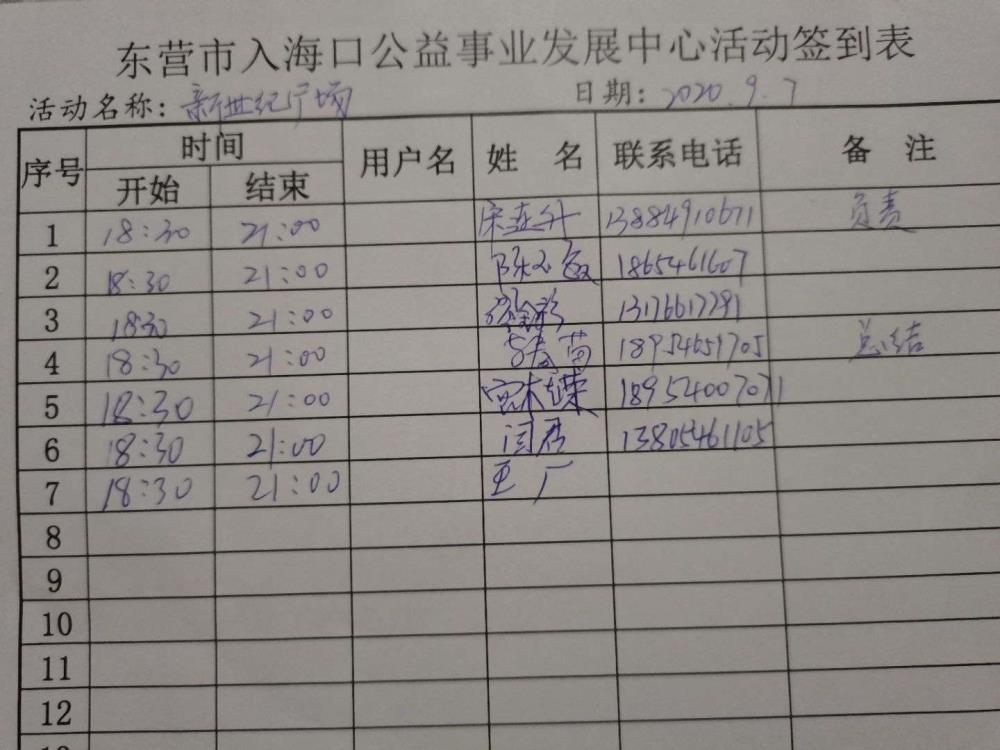 东营市入海口公益事业发展中心活动签到表
活动名称：新世纪广场 日期：2020.9.7
序号 时间 用户名 姓 名 联系电话 备 注
开始 结束
1 18:30 21:00 宋亚升 13884910671 负责
2 18:30 21:00 1865461607
3 1830 21:00 13176617291
4 18:30 21:00 18954659705 总结
5 18:30 21:00 18954007071
6 18:30 21:00 闫 13805461105
7 18:30 21:00 王广
8
9
10
11
12